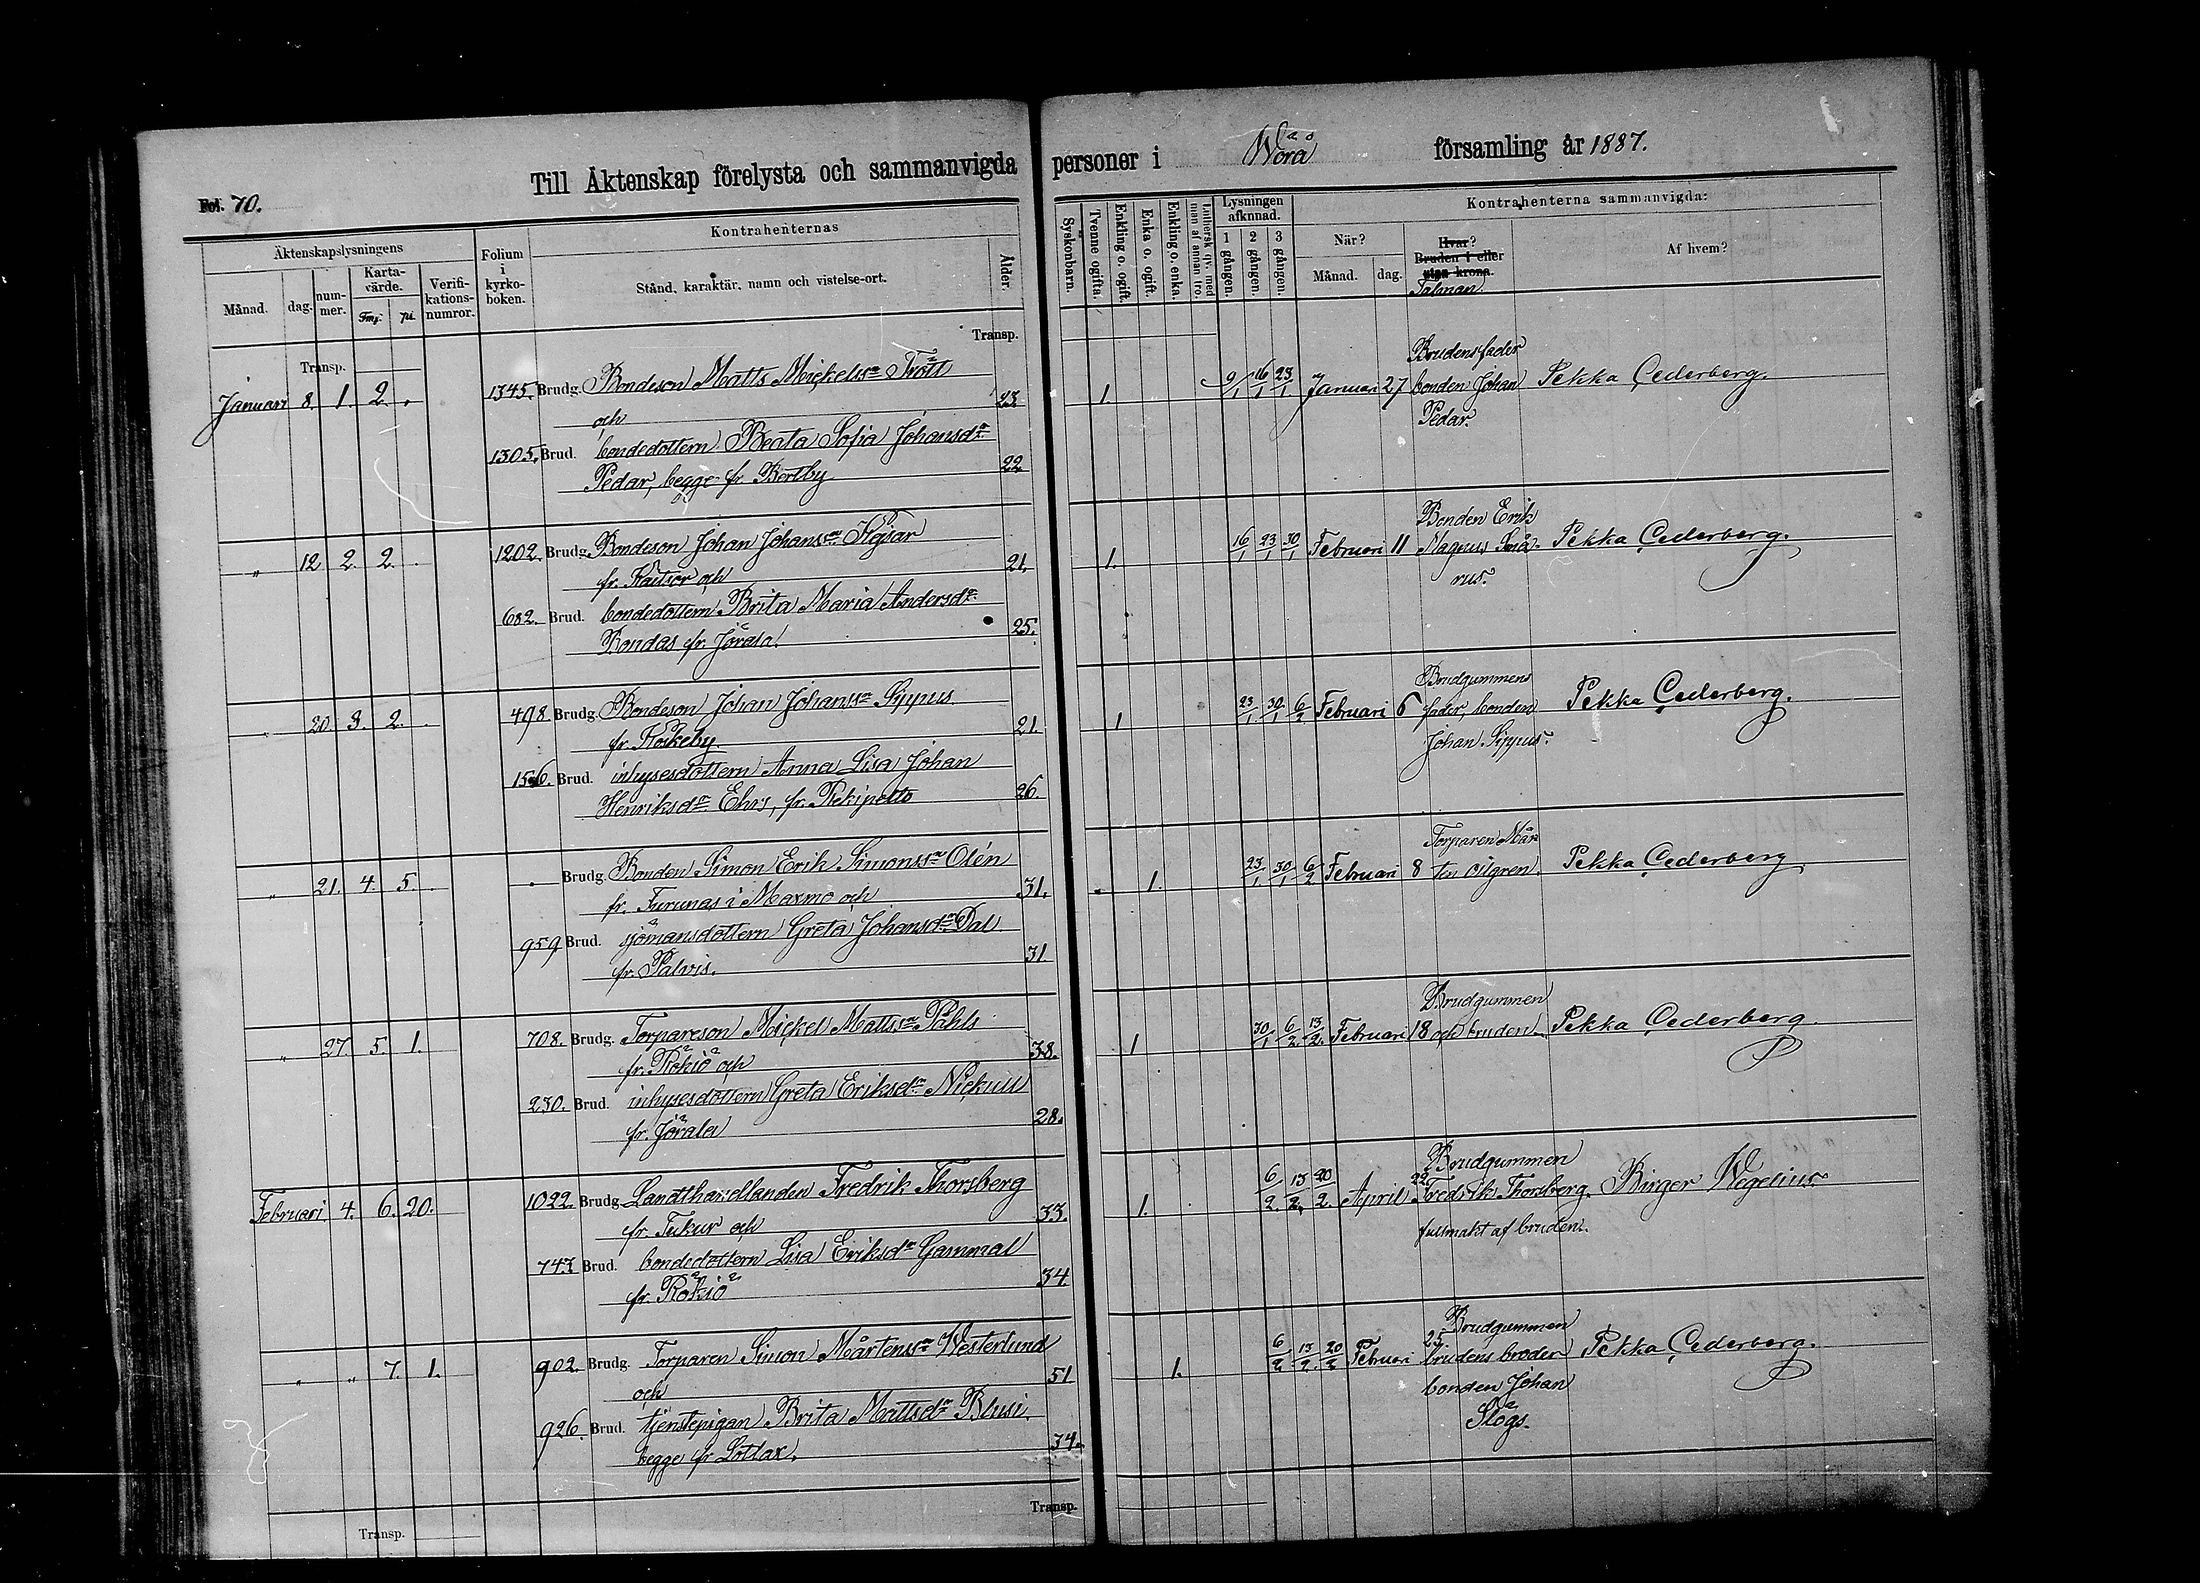 Fol. 70.
Till Äktenskap förelysta och sammanvigda personer i Wörå församling år 1887.
Äktenskapslysningens
Månad. dag. num-mer. Karta-värde. Fmg. pi. Verifi-kations-numror.
Folium i kyrko-boken.
Kontrahenternas
Stånd, karaktär, namn och vistelse-ort.
Ålder.
Syskonbarn. Tvenne ogifta. Enkling o. ogift. Enka o. ogift. Enkling o. enka. Luthersk qv. med man af annan tro.
Lysningen afkunnad.
1 gången. 2 gången. 3 gången.
Kontrahenterna sammanvigda:
När? Månad. dag.
Hvar? Bruden i eller utan krona.
Talman
Af hvem?
Transp. Transp.
Januari 8. 1. 2. . 1345. Brudg. Bondeson Matts Mickelsson Trött 23 1. 9/1 16/1 23/1 Januari 27 Brudens fader
och bonden Johan Pekka Cederberg.
1305. Brud. bondedottern Beata Sofia Johansdr Pedar.
Pedar, begge fr. Bertby 22
" 12 2. 2. . 1202. Brudg. Bondeson Johan Johansson 21. 1. 16/1 23/1 30/1 Februari 11 Bonden Erik
fr. Kaitsor och Magnus Små- Pekka Cederberg.
682. Brud. bondedottern Brita Maria Andersdr rus.
Bondas fr. Jörala. 25.
" 20. 3. 2. . 498. Brudg. Bondeson Johan Johansson Sippus 21. 1 23/1 30/1 6/2 Februari 6 Brudgummens
fr. Koskeby. fader, bonden Pekka Cederberg.
156. Brud. inhysesdottern Anna Lisa Johan Johan Sippus.
Henriksdr Ehrs, fr. Rekipelto 26.
" 21. 4. 5 . . Brudg. Bonden Simon Erik Simonsson Olén 31. 1. 23/1 30/1 6/2 Februari 8 Torparen Mår-
fr. Tuvunas i Maxmo och ten Pekka Cederberg
959 Brud. sjömansdottern Greta Johansdr Dal
fr. Palvis. 31.
" 27 5. 1. 708. Brudg. Torpareson Mickel Mattsson Påhls 38. 1 30/1 6/2 13/2 Februari 18 Brudgummen
fr. Rökiö och och bruden Pekka Cederberg
230. Brud. inhysesdottern Greta Eriksdr Nickull
fr. Jörala 28.
Februari 4. 6. 20. 1022. Brudg. Landthandlanden Fredrik Thorsberg 33. 1. 6/2 13/2 20/2 April 22 Brudgummen
fr. Tukur och Fredrik Thorsberg. Birger Wegelius
743 Brud. bondedottern Lisa Eriksdr Gammal fullmakt af bruden.
fr. Rökiö 34.
" " 7. 1. 902. Brudg. Torparen Simon Mårtensson Westerlund 51 1. 6/2 13/2 20/2 Februari 25 Brudgummen
och brudens broder Pekka Cederberg.
926. Brud. tjenstepigan Brita Mattsdr Blusi, bonden Johan
begge fr. Lotlax. 34. Slögs.
Transp. Transp.